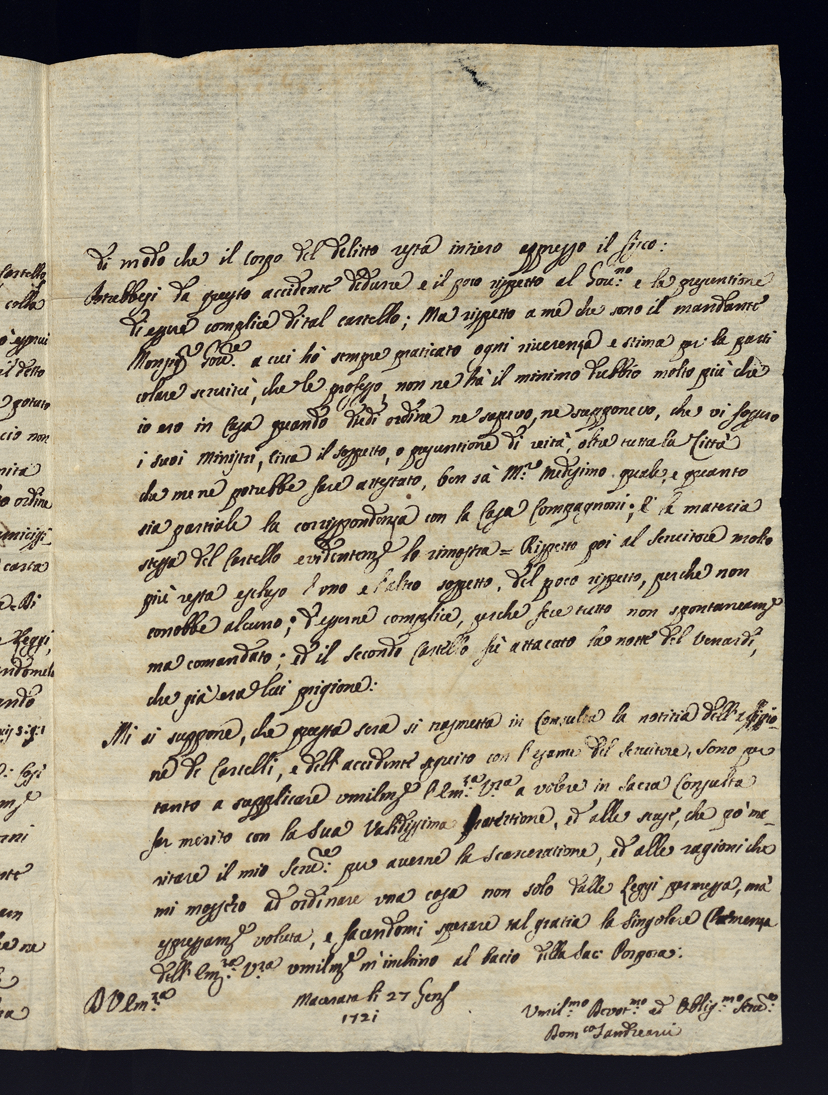 Castello
di modo che il corpo del delitto resta intiero appresso il fisco:
colla
Potrebbesi da questo accidente dedurre e il poco rispetto al Gov.no e la presuntione
d'essere complice di tal cartello; Ma rispetto a me che sono il mandante
il detto
Monsig.e Gov.re a cui hò sempre praticato ogni riverenza e stima per la parti
potuto
colare servitù, che le professo, non ne hà il minimo dubbio molto più che
cio non
io ero in Casa quando diedi ordine ne sapevo, ne supponevo, che vi fossero
i suoi Ministri, circa il sospetto, o presuntione di reità, oltre tutta la Città
ordine
che me ne potrebbe fare attestato, ben sà M.re medesimo quale, e quanto
sia partiale la corrispondenza con la Casa Compagnoni; e la materia
carta
stessa del Cartello evidentem.e lo rimostra = Rispetto poi al Servitore molto
più resta escluso l'uno e l'altro sospetto, del poco rispetto, perche non
Leggi,
conobbe alcuno; d'esserne complice, perche fece tutto non spontaneam.e
ma comandato; ed il secondo Cartello fù attacato la notte del Venardi,
che già era lui prigione:
Mi si suppone, che questa sera si trasmetta in Consulta la notitia dell'affissio-
ne de Cartelli, e dell'accidente seguito con l'esame del Servitore, sono per
tanto a supplicare umilm.e l'Em.za V.ra a volere in Sacra Consulta
far merito con la Sua Validissima Protettione, ed alle scuse, che pò me-
ritare il mio Serv.re per averne la scarceratione, ed alle ragioni che
mi mossero ad ordinare una cosa non solo dalle Leggi permessa, mà
espressam.e voluta, e facendomi sperare tal gratia la singolare Clemenza
dell'Em.za V.ra umilm.e m'inchino al bacio della Sac: Porpora:
D V Em.za
Macerata li 27 Gen.o
1721
Umil.mo Devot.mo ed Oblig.mo Serv.re
Dom.co